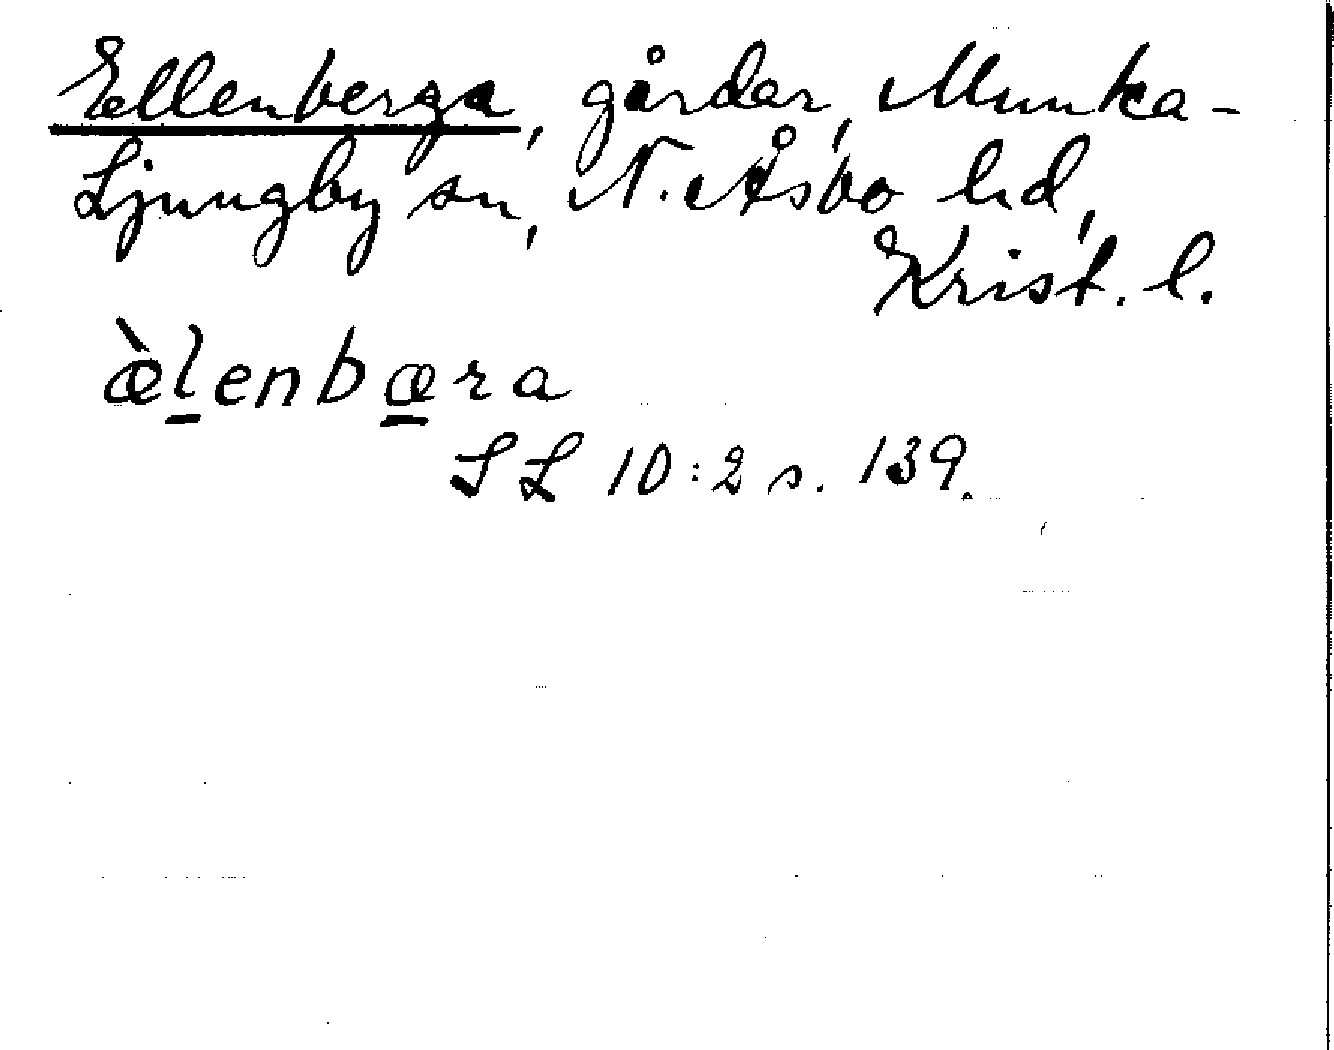 Ellenberga, gårdar, Munka-
Ljungby sn, N. Åsbo hd,
Krist. l.
æ̀l̠enbæ̠ra
SL 10:2 s. 139.